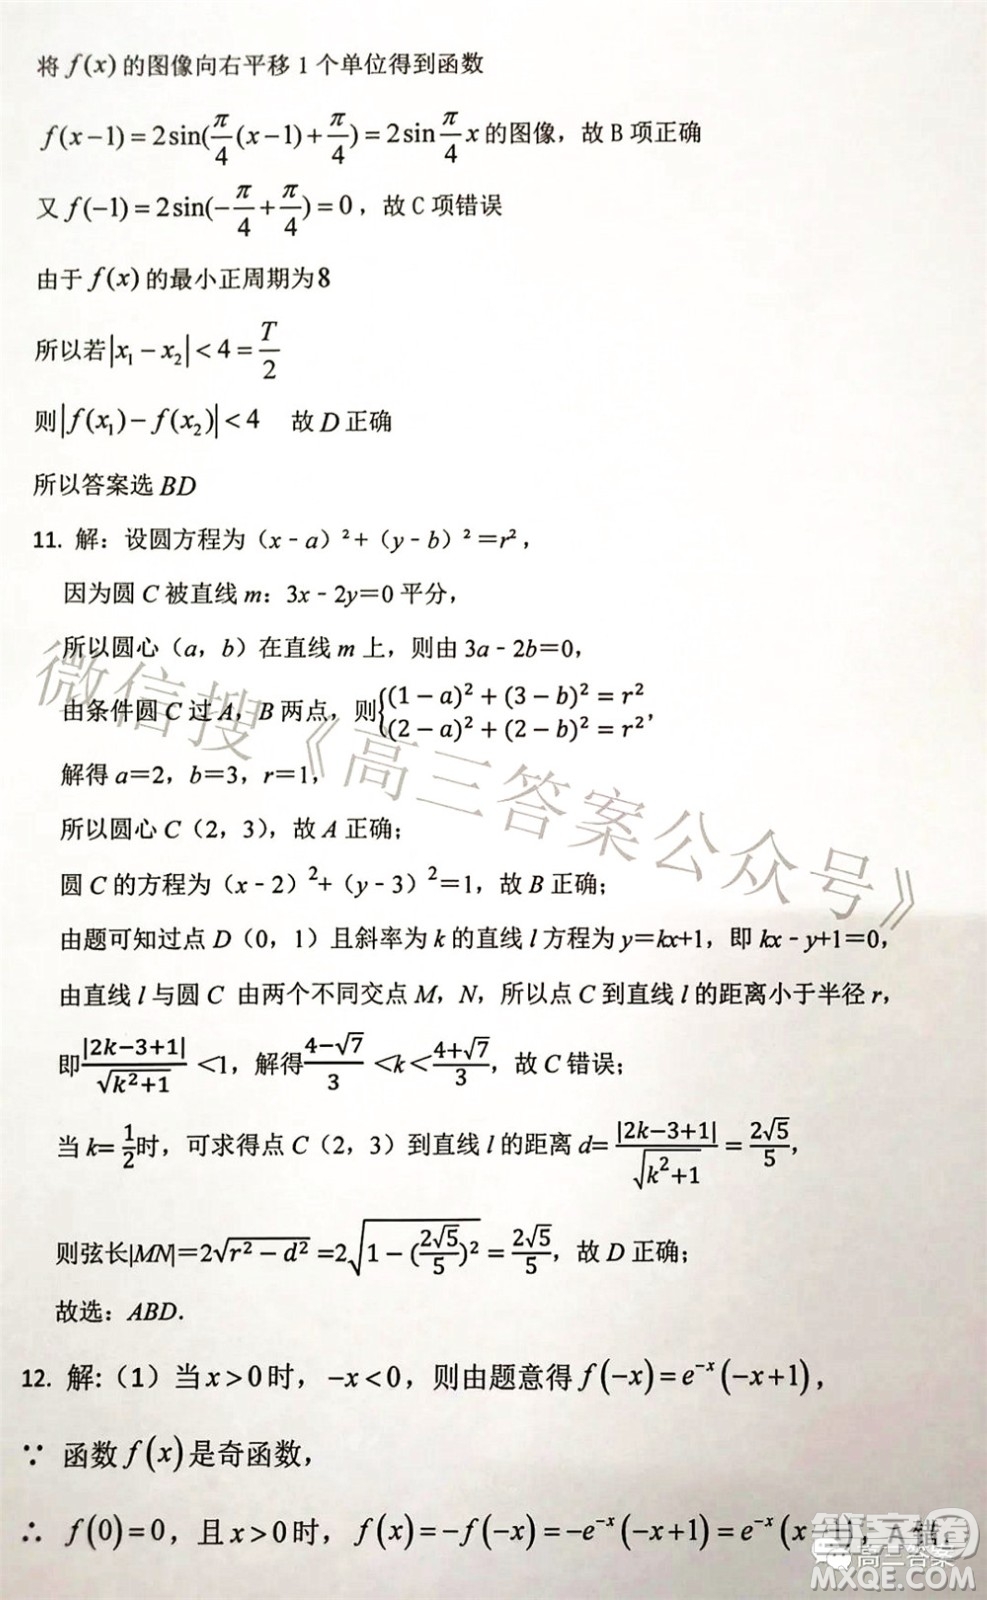 将 f(x) 的图像向右平移 1 个单位得到函数
f(x−1)=2sin(π/4(x−1)+π/4)=2sin π/4 x 的图像，故 B 项正确
又 f(−1)=2sin(−π/4+π/4)=0，故 C 项错误
由于 f(x) 的最小正周期为8
所以若|x₁−x₂|<4=T/2
则|f(x₁)−f(x₂)|<4 故 D 正确
所以答案选 BD
11. 解：设圆方程为（x﹣a）²+（y﹣b）²＝r²，
因为圆 C 被直线 m：3x﹣2y＝0 平分，
所以圆心（a，b）在直线 m 上，则由 3a﹣2b＝0，
由条件圆 C 过 A，B 两点，则{(1−a)²+(3−b)²=r² (2−a)²+(2−b)²=r²，
解得 a＝2，b＝3，r＝1，
所以圆心 C（2，3），故 A 正确；
圆 C 的方程为（x﹣2）²+（y﹣3）²＝1，故 B 正确；
由题可知过点 D（0，1）且斜率为 k 的直线 l 方程为 y＝kx+1，即 kx﹣y+1＝0，
由直线 l 与圆 C 由两个不同交点 M，N，所以点 C 到直线 l 的距离小于半径 r，
即|2k−3+1|/√(k²+1)<1，解得(4−√7)/3<k<(4+√7)/3，故 C 错误；
当 k=1/2时，可求得点 C（2，3）到直线 l 的距离 d=|2k−3+1|/√(k²+1)=2√5/5，
则弦长|MN|＝2√(r²−d²)=2√(1−(2√5/5)²)=2√5/5，故 D 正确；
故选：ABD．
12. 解:（1）当 x>0 时，−x<0，则由题意得 f(−x)=e⁻ˣ(−x+1)，
∵ 函数 f(x) 是奇函数，
∴ f(0)=0，且 x>0 时，f(x)=−f(−x)=−e⁻ˣ(−x+1)=e⁻ˣ(x−1)，A 错
微信搜《高三答案公众号》
答案卷
高三答案
MXQE.COM